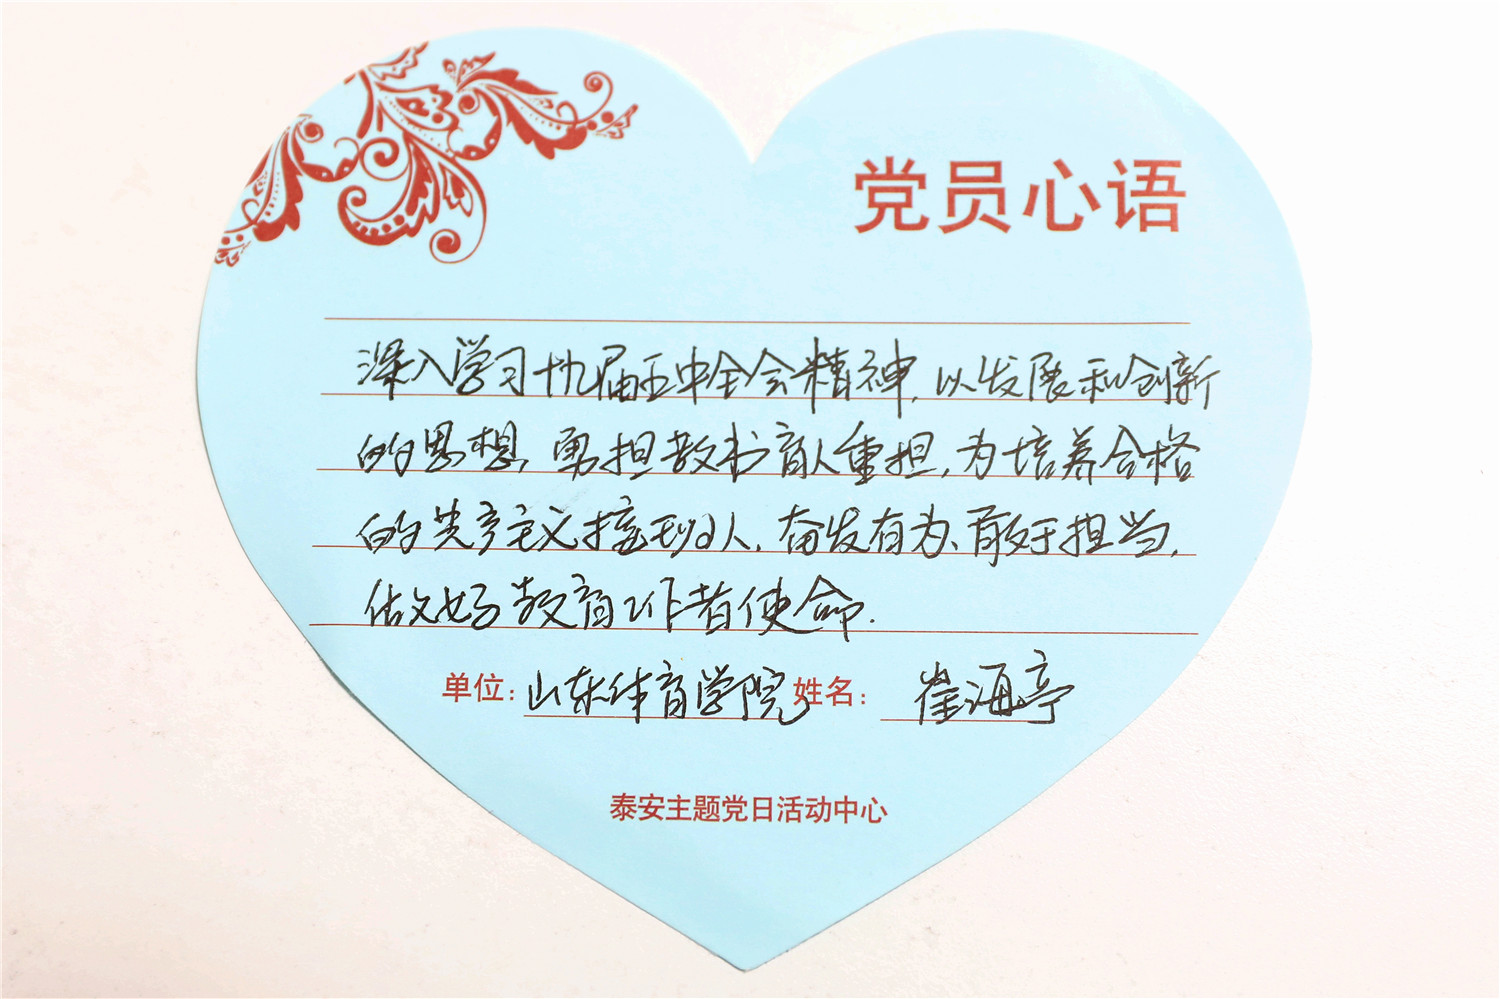 党员心语
深入学习十九届五中全会精神，以发展和创新
的思想，勇担教书育人重担，为培养合格
的共产主义接班人，奋发有为、敢于担当，
做好教育工作者使命.
单位：山东体育学院 姓名：崔海亭
泰安主题党日活动中心